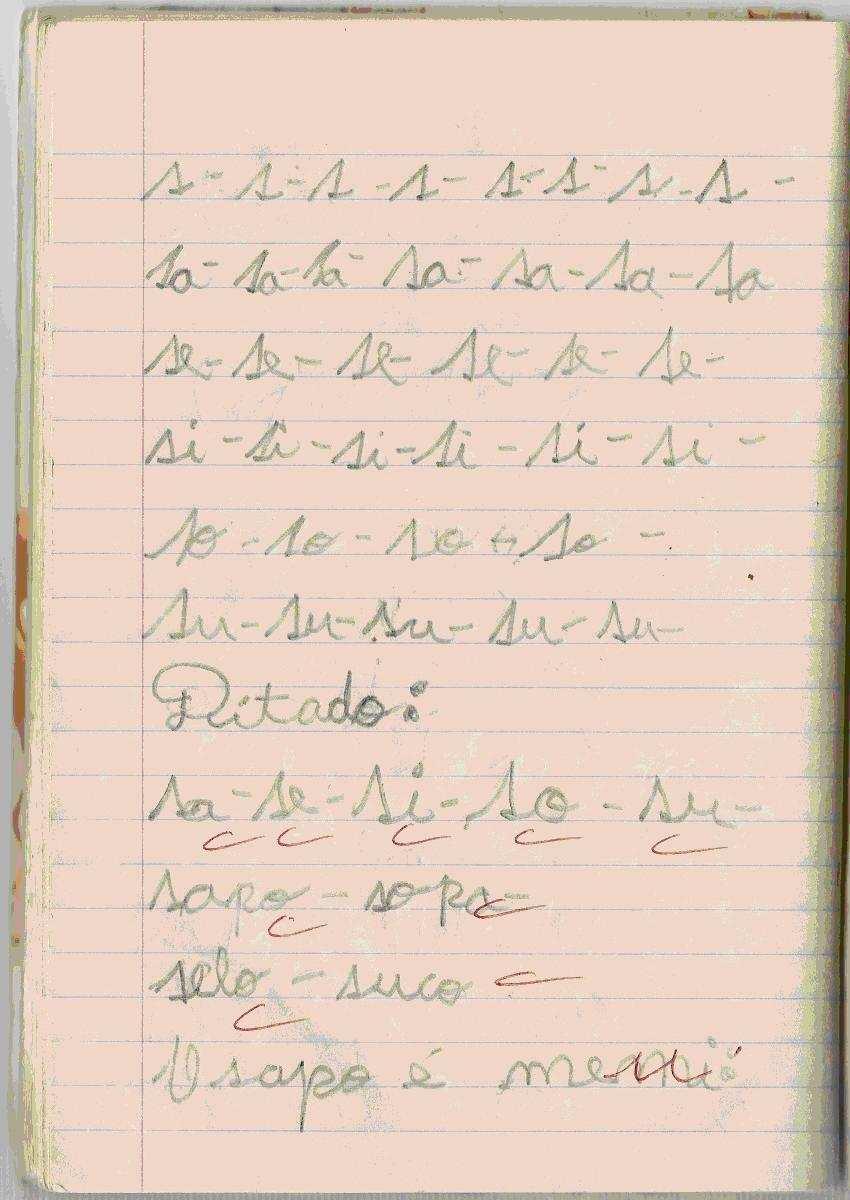 s - s - s - s - s - s - s - s -
sa - sa - sa - sa - sa - sa - sa
se - se - se - se - se - se -
si - si - si - si - si - si -
so - so - so - so -
su - su - su - su - su -
Ditado:
sa - se - si - so - su -
sapo - sopa -
selo - suco
O sapo é